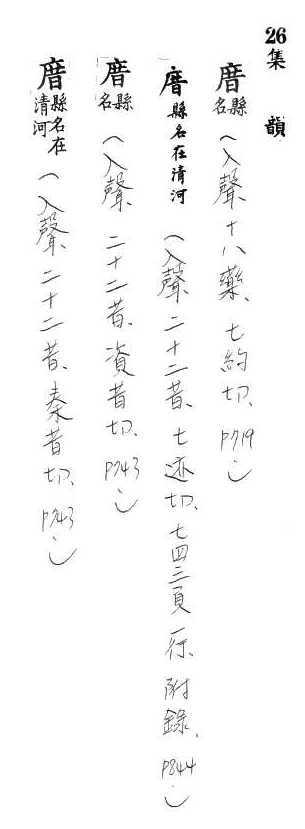 26 集韻
厝 縣名（入聲、十八藥、七約切、P719）
厝 縣名在清河（入聲、二十二昔、七迹切、七四三頁一行、附錄、P844）
厝 縣名（入聲、二十二昔、資昔切、P743）
厝 縣名在清河（入聲、二十二昔、秦昔切、P743）